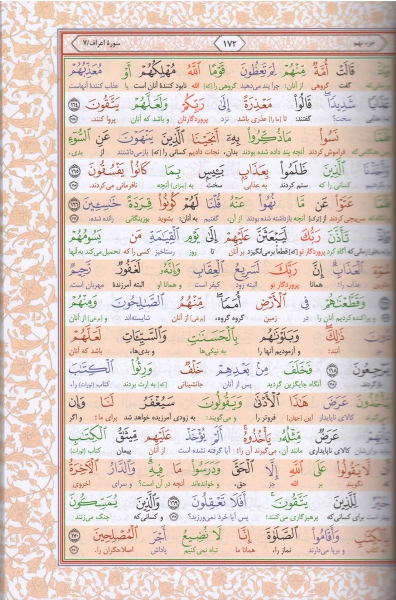 جزء نهم ۱۷۲ سورهٔ اعراف/۷
قَالَتْ أُمَّةٌ مِنْهُمْ لِمَ تَعِظُونَ قَوْمًا اللَّهُ مُهْلِكُهُمْ أَوْ مُعَذِّبُهُمْ
گفت گروهی از آنان: چرا پند می‌دهید گروهی را [که] الله نابود کنندهٔ آنان است یا عذاب کنندهٔ آنهاست
عَذَابًا شَدِيدًا قَالُوا مَعْذِرَةً إِلَى رَبِّكُمْ وَلَعَلَّهُمْ يَتَّقُونَ ۱۶۴
سخت؟ گفتند: تا [ما را] عذری باشد نزد پروردگارتان و باشد که آنان پروا کنند.
نَسُوا مَا ذُكِّرُوا بِهِ أَنْجَيْنَا الَّذِينَ يَنْهَوْنَ عَنِ السُّوءِ
فراموش کردند آنچه پند داده شده بودند بدان، نجات دادیم کسانی را [که] بازمی‌داشتند از بدی،
الَّذِينَ ظَلَمُوا بِعَذَابٍ بَئِيسٍ بِمَا كَانُوا يَفْسُقُونَ ۱۶۵
کسانی را که ستم کردند به عذابی سخت به [سزای] آنچه نافرمانی می‌کردند.
عَتَوْا عَنْ مَا نُهُوا عَنْهُ قُلْنَا لَهُمْ كُونُوا قِرَدَةً خَاسِئِينَ ۱۶۶
سرپیچی کردند از [ترک] آنچه بازداشته شده بودند از آن، گفتیم به آنان: بشوید بوزینگانی رانده شده.
تَأَذَّنَ رَبُّكَ لَيَبْعَثَنَّ عَلَيْهِمْ إِلَى يَوْمِ الْقِيَامَةِ مَنْ يَسُومُهُمْ
که آگاه کرد پروردگار تو [که] قطعاً برمی‌انگیزد بر آنان تا روز رستاخیز کسی را که تحمیل می‌کند به آنها
سُوءَ الْعَذَابِ إِنَّ رَبَّكَ لَسَرِيعُ الْعِقَابِ وَإِنَّهُ لَغَفُورٌ رَحِيمٌ
عذاب را؛ همانا پروردگار تو البته زود کیفر است و همانا او البته آمرزندهٔ مهربان است.
وَقَطَّعْنَاهُمْ فِي الْأَرْضِ أُمَمًا مِنْهُمُ الصَّالِحُونَ وَمِنْهُمْ
و پراکنده کردیم آنان را در زمین گروه گروه، از آنان شایسته‌اند و [برخی] از آنان
ذَلِكَ وَبَلَوْنَاهُمْ بِالْحَسَنَاتِ وَالسَّيِّئَاتِ لَعَلَّهُمْ
آنند؛ و آزمودیم آنها را به نیکی‌ها و بدی‌ها، باشد که آنان
يَرْجِعُونَ ۱۶۸ فَخَلَفَ مِنْ بَعْدِهِمْ خَلْفٌ وَرِثُوا الْكِتَابَ
بازگردند. آنگاه جایگزین گردید پس از آنان جانشینانی [که] به ارث بردند کتاب (تورات) را،
يَأْخُذُونَ عَرَضَ هَذَا الْأَدْنَى وَيَقُولُونَ سَيُغْفَرُ لَنَا وَإِنْ
کالای ناپایدار این [جهان] فروتر را و می‌گویند: به زودی آمرزیده خواهد شد برای ما؛ و اگر
يَأْتِهِمْ عَرَضٌ مِثْلُهُ يَأْخُذُوهُ أَلَمْ يُؤْخَذْ عَلَيْهِمْ مِيثَاقُ الْكِتَابِ
کالای ناپایداری مانند آن، می‌گیرند آن را؛ آیا گرفته نشده است از آنان پیمان کتاب (تورات)
لَا يَقُولُوا عَلَى اللَّهِ إِلَّا الْحَقَّ وَدَرَسُوا مَا فِيهِ وَالدَّارُ الْآخِرَةُ
نگویند بر الله جز حق، و خوانده‌اند آنچه در آن است؛ و سرای اخروی
لِلَّذِينَ يَتَّقُونَ أَفَلَا تَعْقِلُونَ ۱۶۹ وَالَّذِينَ يُمَسِّكُونَ
برای کسانی که پرهیزگاری می‌کنند؛ پس آیا خرد نمی‌ورزید؟ و کسانی که چنگ می‌زنند
بِالْكِتَابِ وَأَقَامُوا الصَّلَاةَ إِنَّا لَا نُضِيعُ أَجْرَ الْمُصْلِحِينَ ۱۷۰
به کتاب و برپا می‌دارند نماز را، همانا ما تباه نمی‌کنیم پاداش اصلاحگران را.